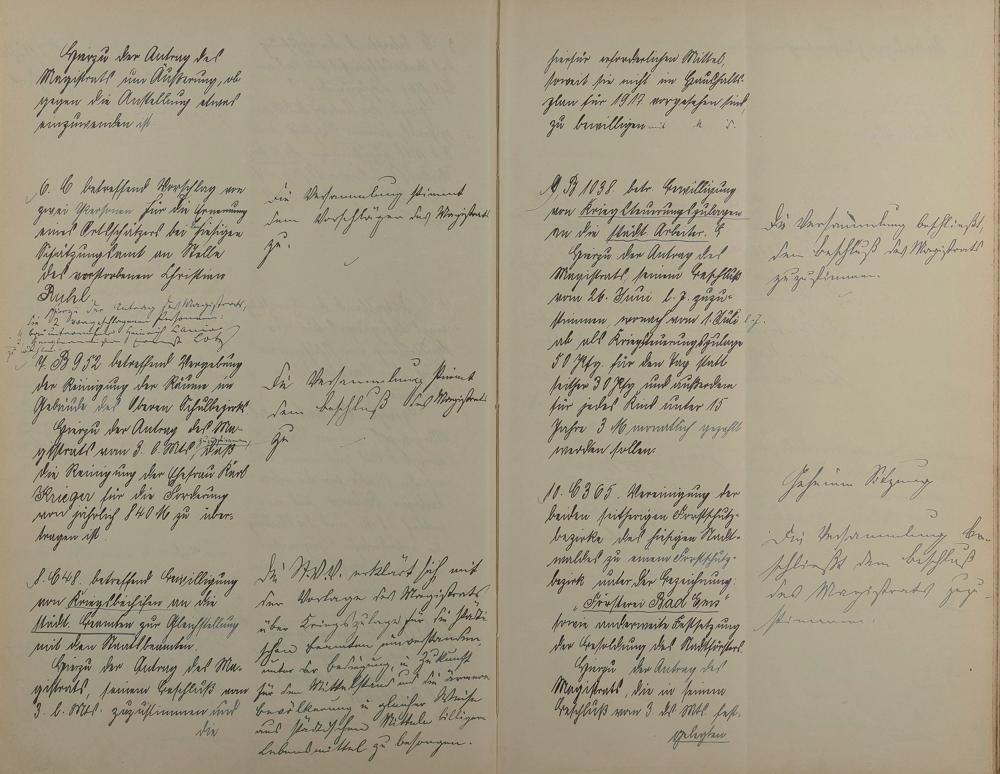 Hierzu der Antrag des
Magistrats um Äußerung, ob
gegen die Anstellung etwas
einzuwenden ist
6. C betreffend Vorschlag von
zwei Personen für die Ernennung
eines Ortsschätzers bei hiesigen
Schätzungsamt an Stelle
des verstorbenen Christian
Ruhl.
Hierzu der Antrag des Magistrats,
die 2 vorgeschlagenen Personen:
Heinrich
Die Versammlung stimmt
dem Vorschlägen des Magistrats
zu.
7. B 952 betreffend Vergebung
der Reinigung der Räume im
Gebäude des Oberen Schulbezirks
Hierzu der Antrag des Ma-
gistrats vom 3. d. Mts. zuzustimmen, daß
die Reinigung der Ehefrau Karl
Krieger für die Forderung
von jährlich 840 M zu über-
tragen ist.
Die Versammlung stimmt
dem Beschluß des Magistrats
zu
8. C 48. betreffend Bewilligung
von Kriegsbeihilfen an die
städt. Beamten zur Gleichstellung
mit den Staatsbeamten.
Hierzu der Antrag des Ma-
gistrats, seinem Beschluß vom
3. d. Mts. zuzustimmen und
die
Die St.V.V. erklärt sich mit
der Vorlage des Magistrats
über Kriegszulage für die städti-
schen Beamten einverstanden,
unter der Bedingung, in Zukunft
für den Mittelstand und die ärmere
Bevölkerung in gleicher Weise
aus städtischen Mitteln billigere
Lebensmittel zu besorgen.
hierfür erforderlichen Mittel,
soweit sie nicht im Haushalts-
plan für 1917 vorgesehen sind,
zu bewilligen
9. B 1038. betr. Bewilligung
von Kriegsteuerungszulagen
an die städt. Arbeiter.
Hierzu der Antrag des
Magistrats, seinem Beschluß
vom 26. Juni l. J. zuzu-
stimmen, wonach vom 1. Juli l. J.
ab als Kriegsteuerungszulage
50 Pfg. für den Tag statt
seither 30 Pfg und außerdem
für jedes Kind unter 15
Jahre 3 M monatlich gezahlt
werden sollen.
Die Versammlung beschließt,
dem Beschluß des Magistrats
zuzustimmen.
10. C 365. Vereinigung der
beiden seitherigen Forstschutz-
bezirke des hiesigen Stadt-
waldes zu einem Forstschutz-
bezirk unter der Bezeichnung:
„Försterei Bad Ems“
sowie anderweite Festsetzung
der Besoldung des Stadtförsters
Hierzu der Antrag des
Magistrats, die in seinem
Beschluß vom 3. ds Mts fest-
gelegten
Geheime Sitzung
Die Versammlung be-
schließt dem Beschluß
des Magistrats zuzu-
stimmen.